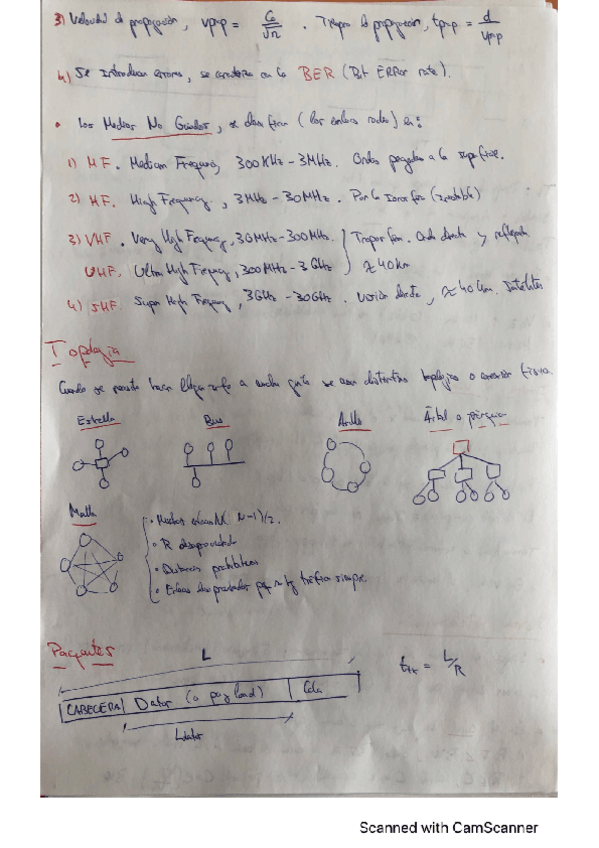 3) Velocidad de propagación, vprop = Co/√n . Tiempo de propagación, tprop = d/Vprop
4) Se introducen errores, se caracteriza con la BER (Bit ERRor rate).
• Los Medios No Guiados, se clasifican (los enlaces radio) en:
1) MF. Medium Frequency, 300KHz - 3MHz. Ondas pegadas a la superficie.
2) HF. High Frequency, 3MHz - 30MHz. Por la Ionosfera
3) VHF. Very High Frequency, 30MHz - 300MHz. Troposfera. Onda directa y reflejada
UHF. Ultra High Frequency, 300MHz - 3GHz ≈ 40km
4) SHF. Super High Frequency, 3GHz - 30GHz. Visión directa, ≈ 40km. Satélites
Topología
Cuando se necesita hacer llegar info a mucha gente se usan distintas topologías o conexión física.
Estrella Bus Anillo Árbol o jerárquica
Malla
• Muchos enlaces N(N-1)/2.
• R desaprovechada
• Distancias prohibitivas
• Enlaces desaprovechados porque no hay tráfico siempre
Paquetes
L
ttx = L/R
CABECERA Datos (o payload) Cola
Ldatos
Scanned with CamScanner